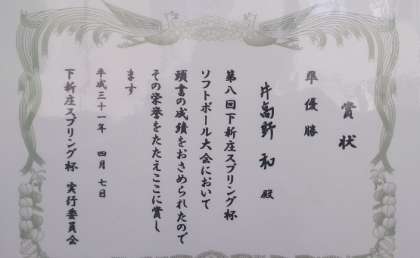 賞状
準優勝
片高野和 殿
第八回下新庄スプリング杯
ソフトボール大会において
頭書の成績をおさめられたので
その栄誉をたたえここに賞し
ます
平成三十一年 四月 七日
下新庄スプリング杯 実行委員会